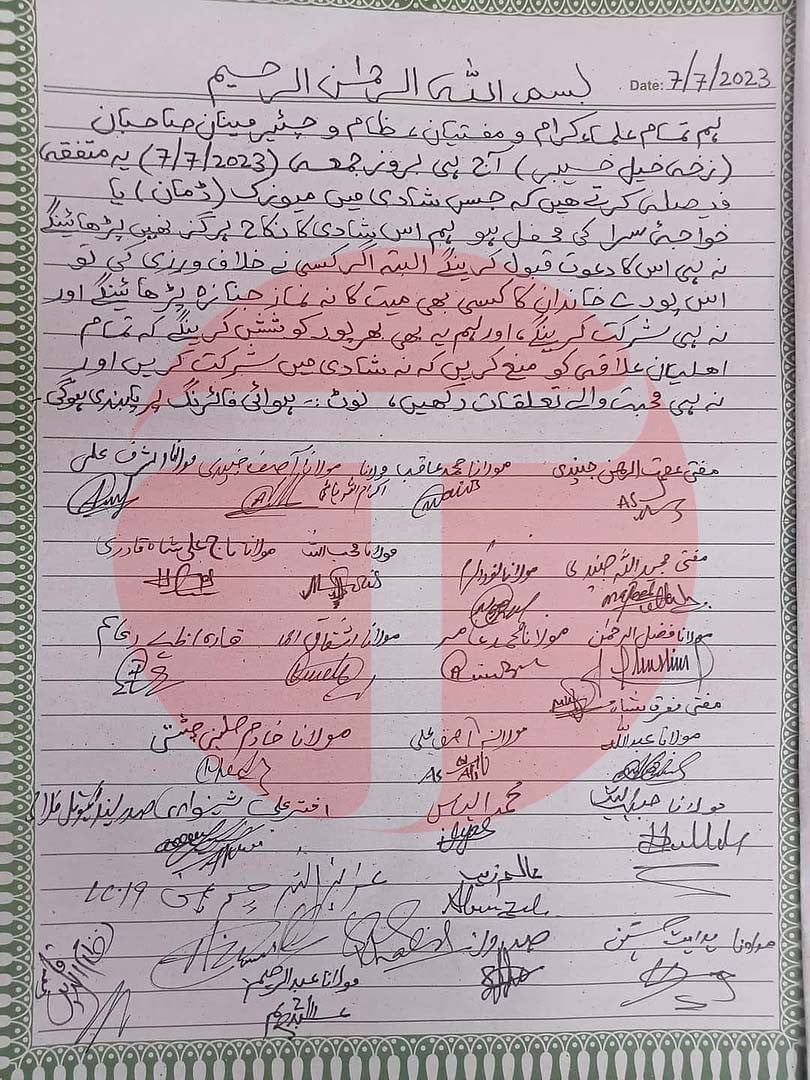 بسم اللہ الرحمٰن الرحیم
Date: 7/7/2023
ہم تمام علماء کرام و مفتیان عظام و چئیرمینان صاحبان
(زخہ خیل خیبر) آج ہی بروز جمعہ (7/7/2023) یہ متفقہ
فیصلہ کرتے ھیں کہ جس شادی میں میوزک (ڈمان) یا
خواجئہ سرا کی محفل ہو ہم اس شادی کا نکاح ہرگز نھیں پڑھائینگے
نہ ہی اس کا دعوت قبول کرینگے البتہ اگر کسی نے خلاف ورزی کی تو
اس پورے خاندان کا کسی بھی میت کا نہ نماز جنازہ پڑھائینگے اور
نہ ہی شرکت کرینگے، اور ہم یہ بھی بھرپور کوشش کرینگے کہ تمام
اھلیان علاقہ کو منع کریں کہ نہ شادی میں شرکت کریں اور
نہ ہی محبت والے تعلقات رکھیں، نوٹ:- ہوائی فائرنگ پر پابندی ہوگی۔
مفتی جنیدی مولانا محمد عاقب مولانا آصف جنیدی مولانا اشرف علی
مفتی جنیدی مولانا مولانا محب اللہ مولانا تاج علی شاہ قادری
مولانا فضل الرحمٰن مولانا محمد عامر مولانا اشفاق
مفتی شاہ
مولانا عبداللہ مولانا آصف علی مولانا خادم حسین چشتی
مولانا محمد الیاس اختر علی شنواری صدر
Ilyas
عالم زیب LC.19
Alamzeb
مولانا
مولانا عبدالرحیم